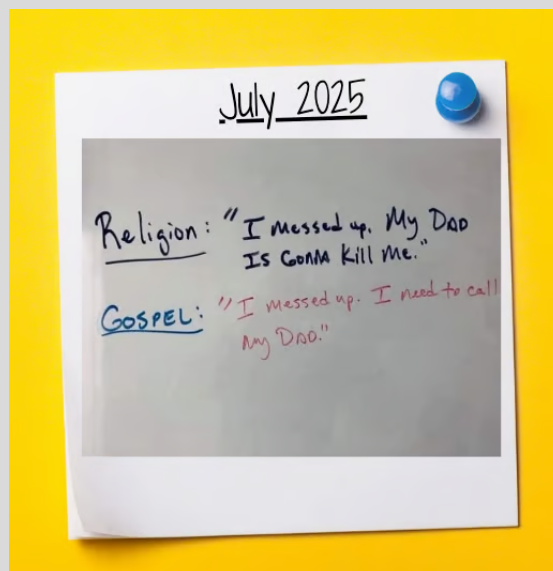 July 2025
Religion: "I messed up. My DAD
IS GONNA Kill Me."
GOSPEL: "I messed up. I need to call
My DAD."